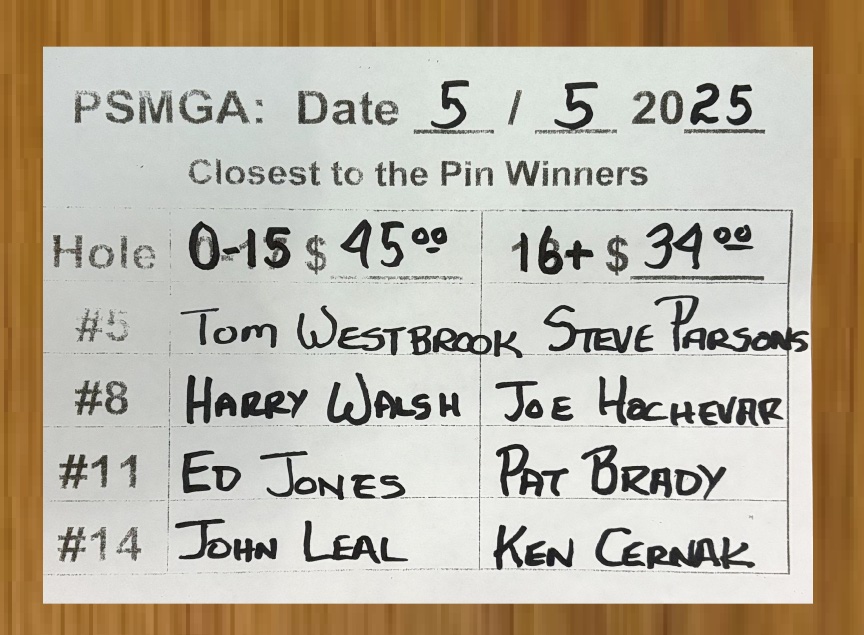 PSMGA: Date 5 / 5 2025
Closest to the Pin Winners
Hole 0-15 $ 45⁰⁰ 16+ $ 34⁰⁰
#5 Tom WESTBROOK STEVE PARSONS
#8 HARRY WALSH JOE HOCHEVAR
#11 ED JONES PAT BRADY
#14 JOHN LEAL KEN CERNAK